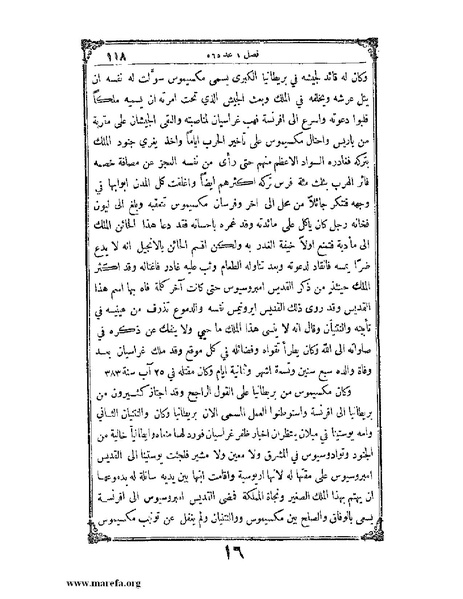 فصل ١ عدد ٥٦٥ ١١٨
وكان له قائد لجيشه في بريطانيا الكبرى يسمى مكسيموس سوَّلت له نفسه ان
يثل عرشه ويخلفه في الملك وبعث الجيش الذي تحت امرته ان يسميه ملكاً
فلبوا دعوته واسرع الى افرنسة فهب غراسيان لمناصبته والتقى الجيشان على مقربة
من باريس واحتال مكسيموس على تأخير الحرب اياماً واخذ يغري جنود الملك
بتركه فغادره السواد الاعظم منهم حتى رأى من نفسه العجز عن مصافة خصمه
فاثر الهرب بثلث مئة فرس تركه اكثرهم ايضاً واغلقت كل المدن ابوابها في
وجهه فتنكر جائلاً من محل الى اخر وفرسان مكسيموس تتعقبه وبلغ الى ليون
فخانه رجل كان ياكل على مائدته وقد غمره باحسانه فقد دعا هذا الخائن الملك
الى مأدبة فتمنع اولاً خيفة الغدر به ولكن اقسم الخائن بالانجيل انه لا يدع
ضرًّا يمسه فانقاد لدعوته وبعد تناوله الطعام وثب عليه غادر فاغتاله وقد اكثر
الملك حينئذٍ من ذكر القديس امبروسيوس حتى كانت آخر كلمة فاه بها اسم هذا
القديس وقد روى ذلك القديس ايرونيمس نفسه والدموع تذرف من عينيه في
تأبينه والنتنيان وقال انه لا ينسى هذا الملك ما حيي ولا ينفك عن ذكره في
صلواته الى الله وكان يطرأ تقواه وفضائله في كل موقع وقد ملك غراسيان بعد
وفاة والده سبع سنين وتسعة اشهر وثمانية ايام وكان مقتله في ٢٥ آب سنة ٣٨٣
وكان مكسيموس من بريطانيا على القول الراجح وقد اجتاز كثيرون من
بريطانيا الى افرنسة واستوطنوا العمل المسمى الان بريطانيا وكان والنتنيان الثاني
وامه يوستينا في ميلان ينتظران اخبار ظفر غراسيان فورد لهما منعاه وايطاليا خالية من
الجنود وتوادوسيوس في المشرق ولا معين ولا مشير فلجئت يوستينا الى القديس
امبروسيوس على مقتها له لانها اريوسية واقامت ابنها بين يديه سائلة له بدموعها
ان يهتم بهذا الملك الصغير ونجاة المملكة فمضى القديس امبروسيوس الى افرنسة
يسعى بالوفاق والصلح بين مكسيموس ووالنتنيان ولم يغفل عن تونيب مكسيموس
١٦
www.marefa.org